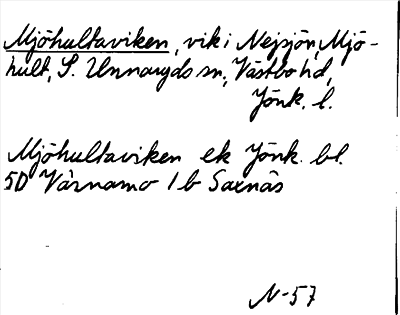 Mjöhultaviken, vik i Nejsjön, Mjö-
hult, S. Unnaryds sn, Västbo hd,
Jönk. l.
Mjöhultaviken ek Jönk. bl.
5D Värnamo 1 b Saxnäs
N-57